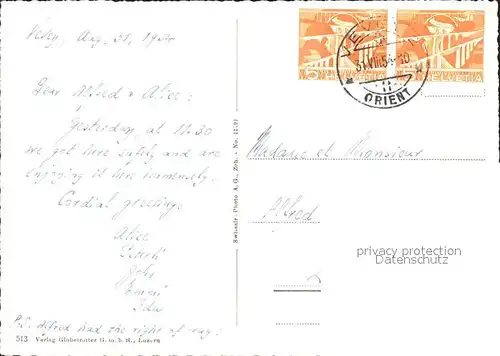 Vevey, Aug. 31, 1954
Dear Alfred & Alice:
Yesterday, at 11.30
we got here safely and are
enjoying it here immensely.
Cordial greetings
Alice
John
Emmi
Ida
P.S. Alfred had the right of way.
513 Verlag Globetrotter G.m.b.H., Luzern
Swissair-Photo A.G., Zch. - No. 11131
5 HELVETIA
HELVETIA
VEVEY
31.VIII.54.-10
11
ORIENT
Madame et Monsieur
Alfred
privacy protection
Datenschutz